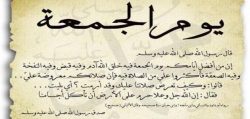 يوم الجمعة
قال رسول الله صلى الله عليه وسلم
إن من أفضل أيامكم يوم الجمعة فيه خلق الله آدم وفيه قبض وفيه النفخة
وفيه الصعقة فأكثروا علي من الصلاة فيه فإن صلاتكم معروضة علي
قالوا: وكيف تعرض صلاتنا عليك وقد أرمت؟
فقال: إن الله جل وعلا حرم على الأرض أن تأكل أجسامنا
صدق رسول الله صلى الله عليه وسلم